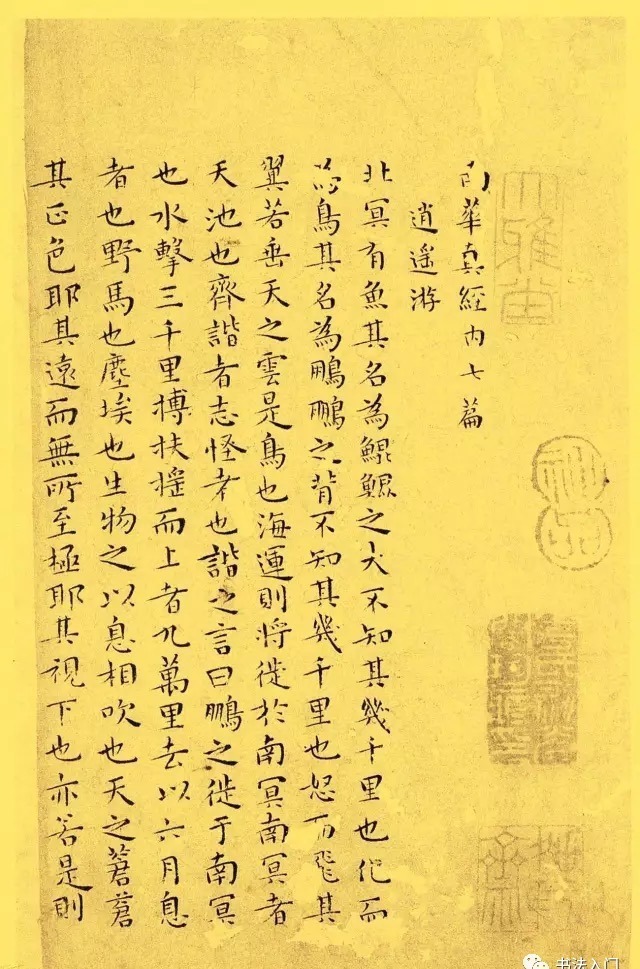 大雅堂
神品
南華真經內七篇
逍遙游
北冥有魚其名為鯤鯤之大不知其幾千里也化而
為鳥其名為鵬鵬之背不知其幾千里也怒而飛其
翼若垂天之雲是鳥也海運則將徙於南冥南冥者
天池也齊諧者志怪者也諧之言曰鵬之徙于南冥
也水擊三千里摶扶搖而上者九萬里去以六月息
者也野馬也塵埃也生物之以息相吹也天之蒼蒼
其正色耶其遠而無所至極耶其視下也亦若是則
书法入门